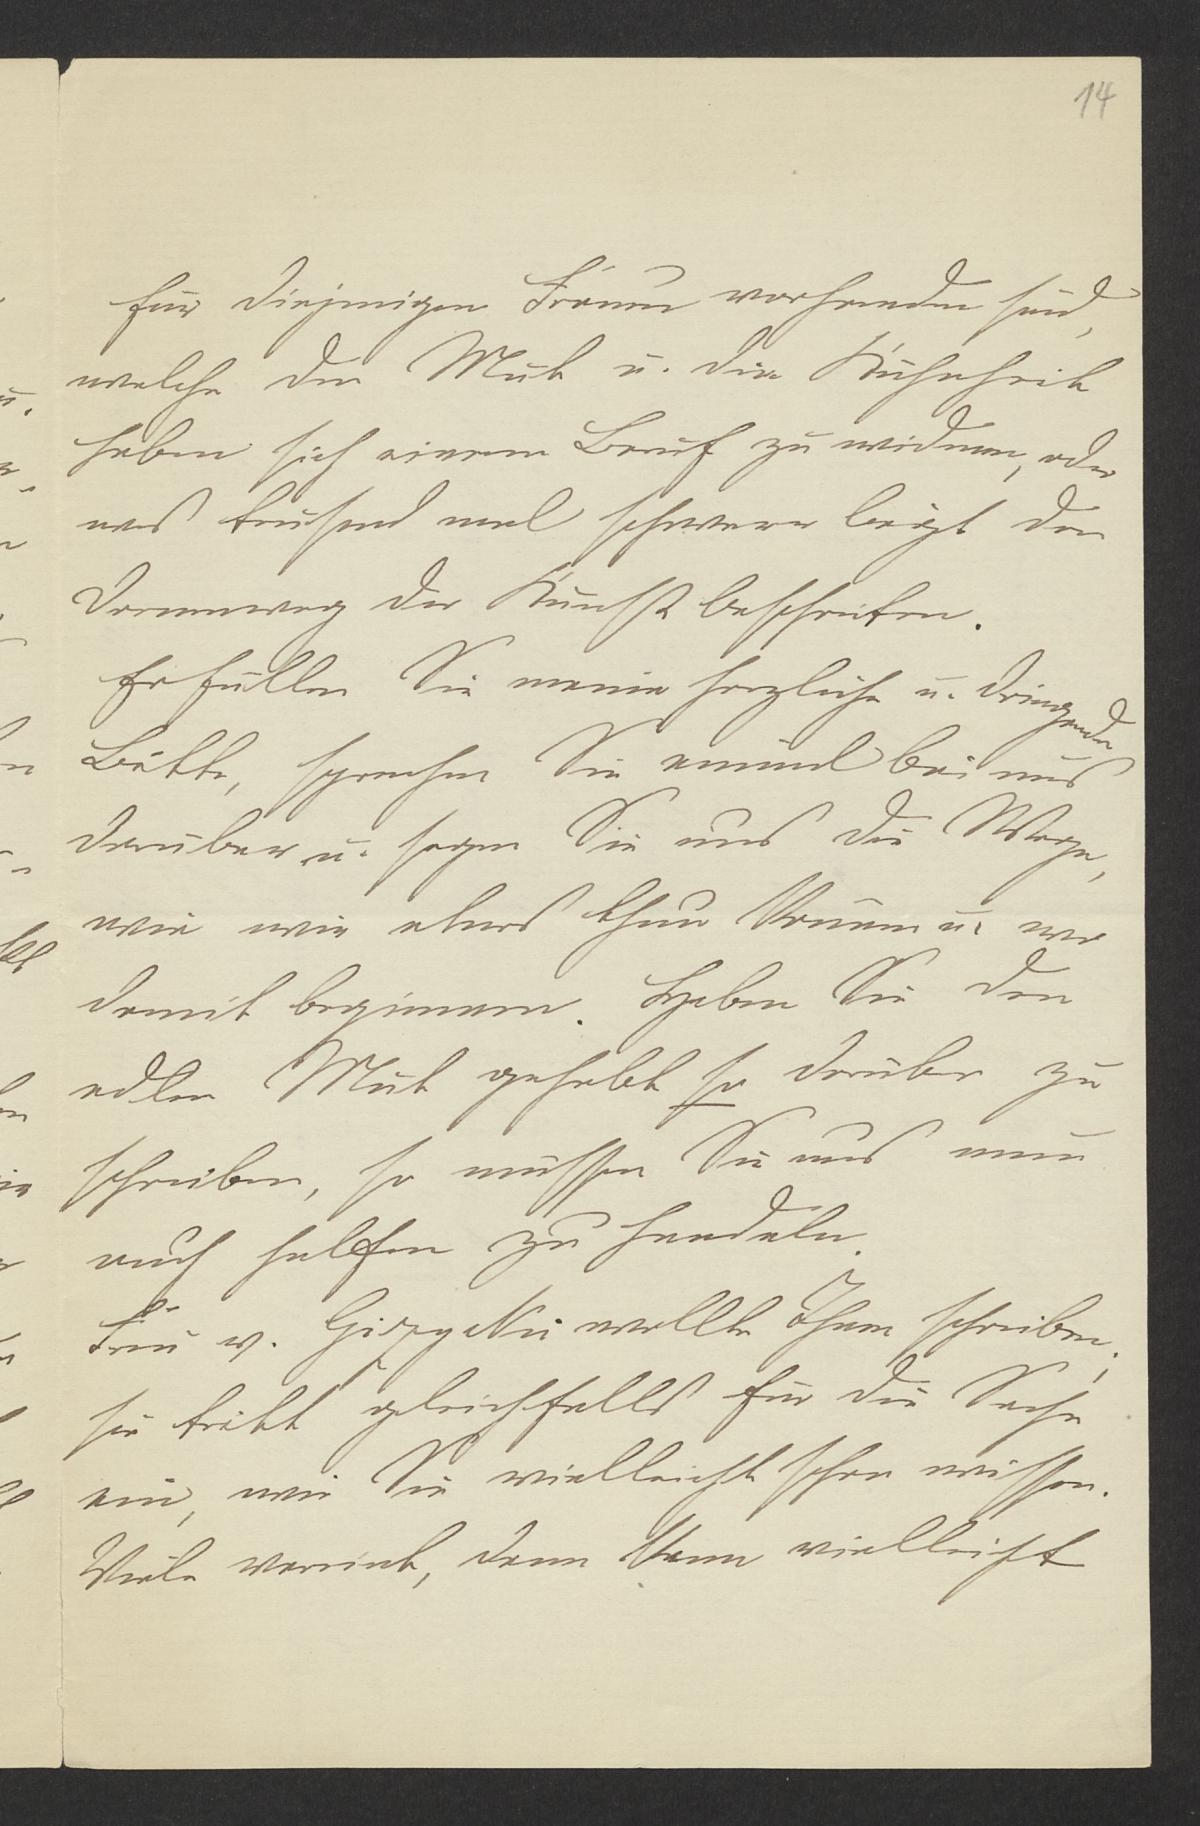 14
für diejenigen Frauen vorhanden sind,
welche den Mut u. die Kühnheit
haben sich einem Beruf zu widmen, oder
was tausend mal schwerer
Dornenweg der Kunst beschreiten.
Erfüllen Sie meine herzliche u. dringende
Bitte, sprechen Sie einmal bei uns
darüber u. sagen Sie uns die Wege,
wie wir etwas thun können u. wo
damit beginnen. Haben Sie den
edlen Mut gehabt so darüber zu
schreiben, so müssen Sie uns nun
auch helfen zu handeln.
Frau v. Gizycki wollte Ihnen schreiben,
sie tritt gleichfalls für die Sache
ein, wie Sie vielleicht schon wissen.
Viele vereint, dann kann vielleicht